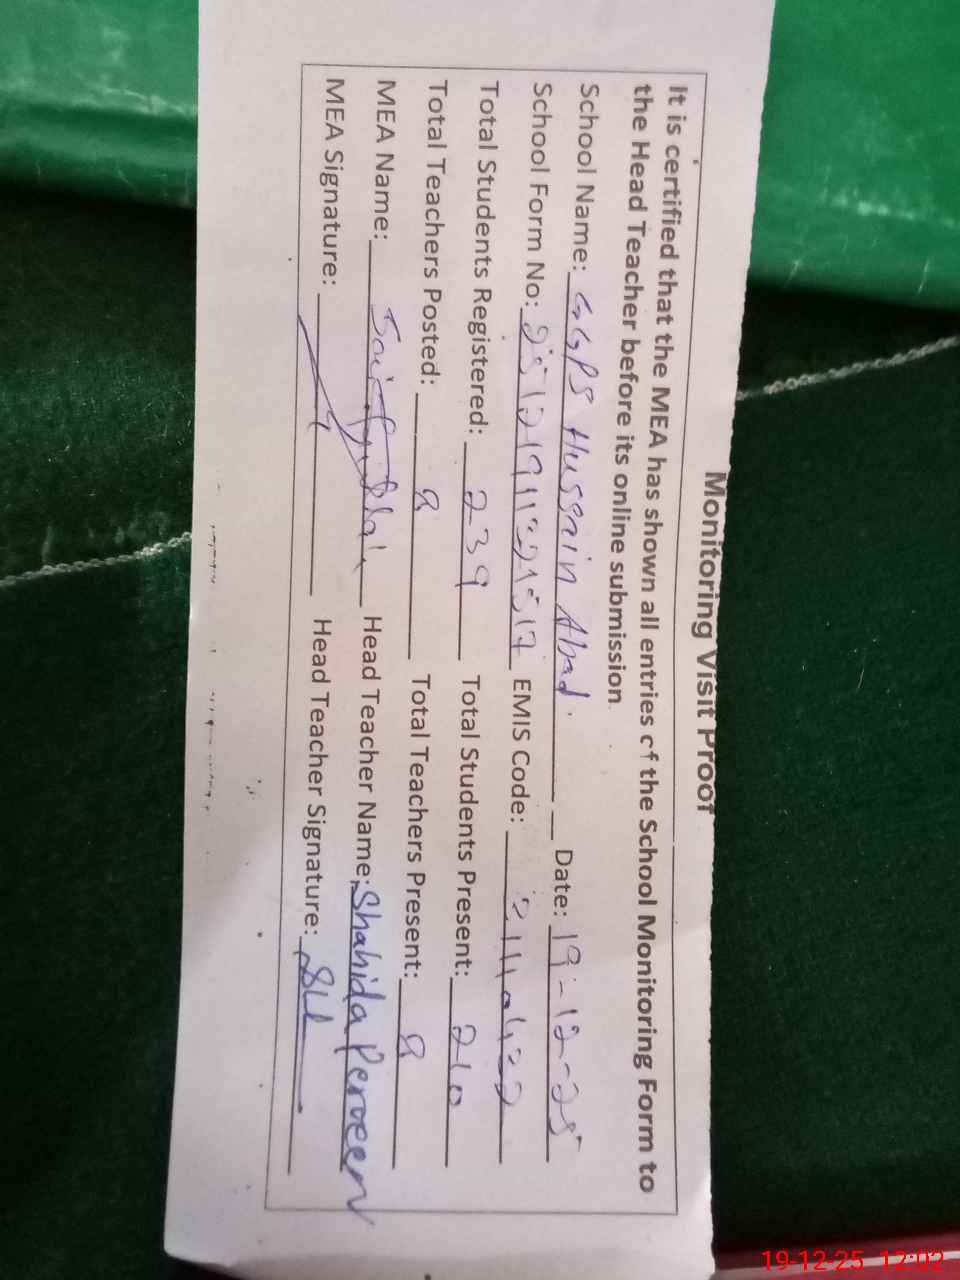 Monitoring Visit Proof
It is certified that the MEA has shown all entries of the School Monitoring Form to
the Head Teacher before its online submission
School Name: GGPS Hussain Abad. Date: 19-12-25
School Form No: EMIS Code:
Total Students Registered: 239 Total Students Present: 210
Total Teachers Posted: 8 Total Teachers Present: 8
MEA Name: Head Teacher Name: Shahida Perveen
MEA Signature: Head Teacher Signature:
19-12-25 12:02